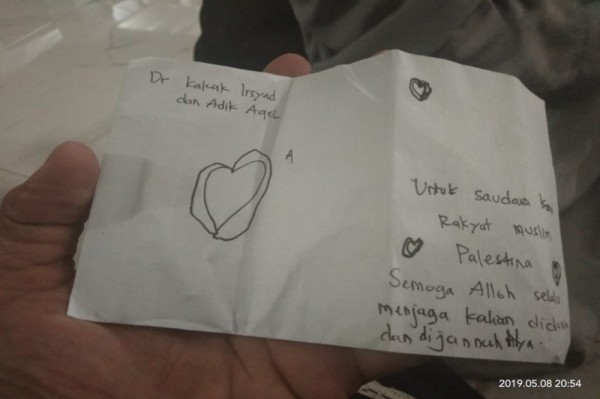 Dr Kakak Irsyad
dan Adik Aqel
A
Untuk saudara
Rakyat muslim
Palestina
Semoga Alloh
menjaga kalian
dan dijannahNya.
2019.05.08 20:54